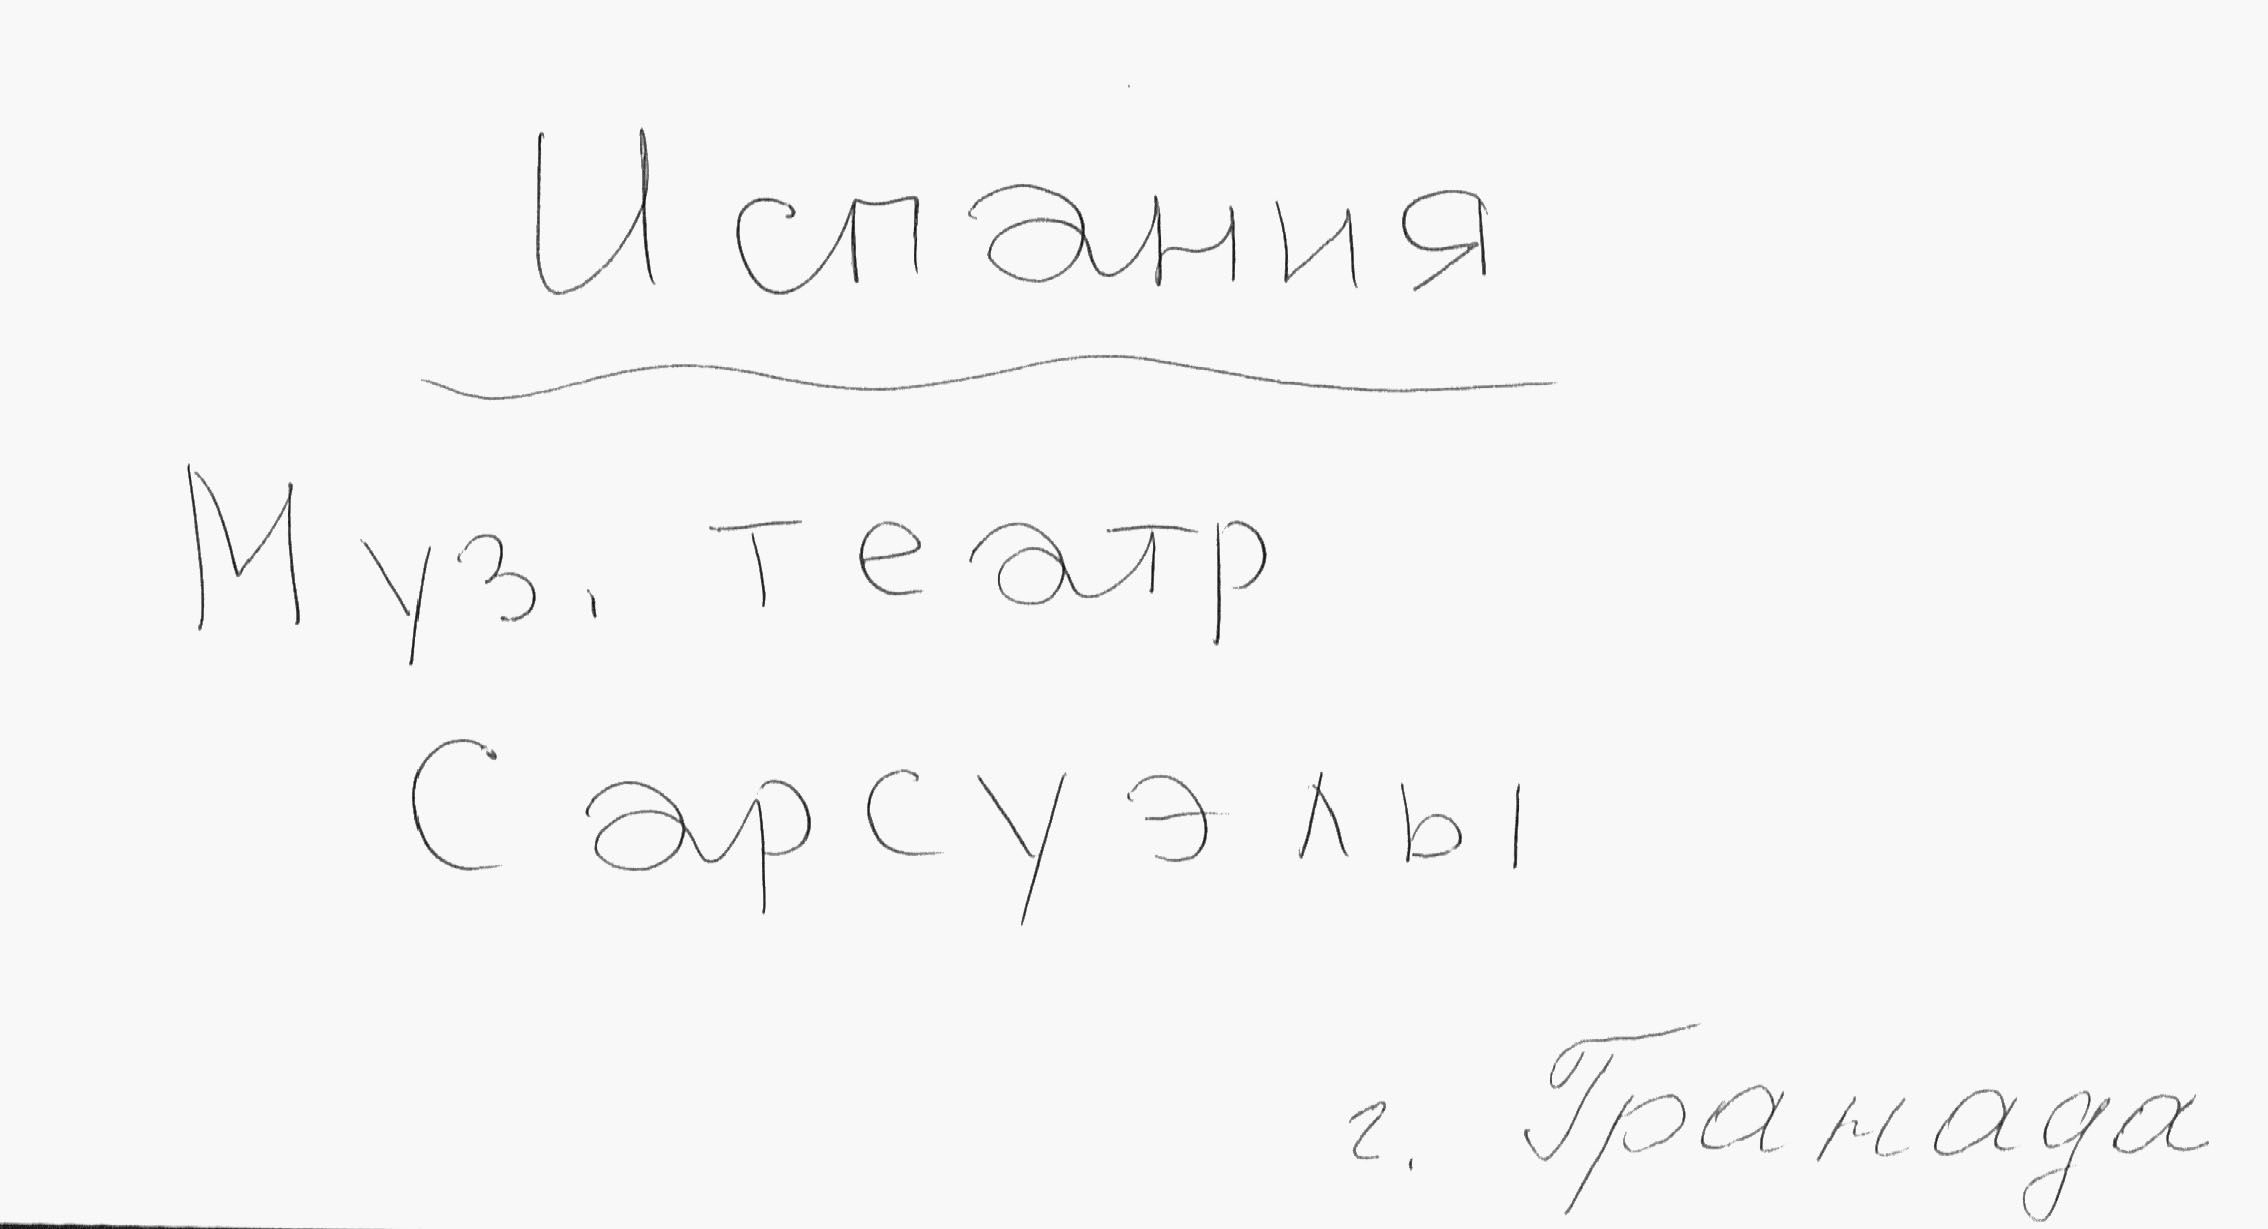 Испания
Муз. театр
Сарсуэлы
г. Гранада